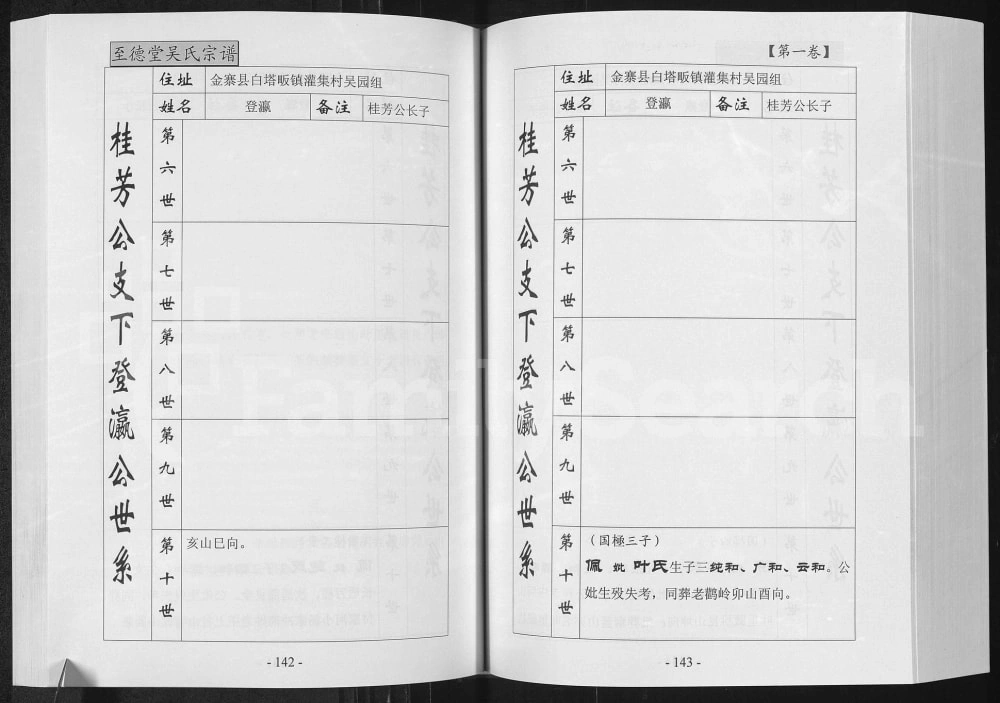 至德堂吴氏宗谱
住址 金寨县白塔畈镇灌集村吴园组
姓名 登瀛 备注 桂芳公长子
桂芳公支下登瀛公世系
第六世
第七世
第八世
第九世
第十世
亥山巳向。
- 142 -
【第一卷】
住址 金寨县白塔畈镇灌集村吴园组
姓名 登瀛 备注 桂芳公长子
桂芳公支下登瀛公世系
第六世
第七世
第八世
第九世
第十世
（国極三子）
佩 妣 叶氏生子三纯和、广和、云和。公
妣生殁失考，同葬老鹳岭卯山酉向。
- 143 -
FamilySearch